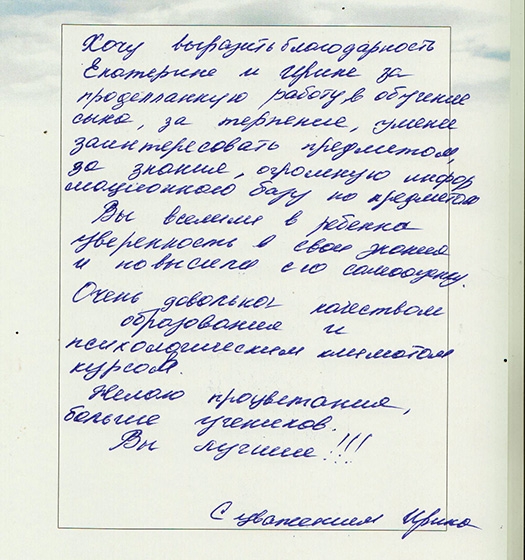 Хочу выразить благодарность
Екатерине и Ирине за
проделанную работу, в обучение
сына, за терпение, умение
заинтересовать предметом,
за знания, огромную инфор
мационного базу по предметам
Вы вселили в ребенка
уверенность в свои знания
и повысили его самооценку.
Очень довольна качеством
образования и
психологическим климатом
курсов.
Желаю процветания,
больше учеников.
Вы лучшие!!!
С уважением Ирина